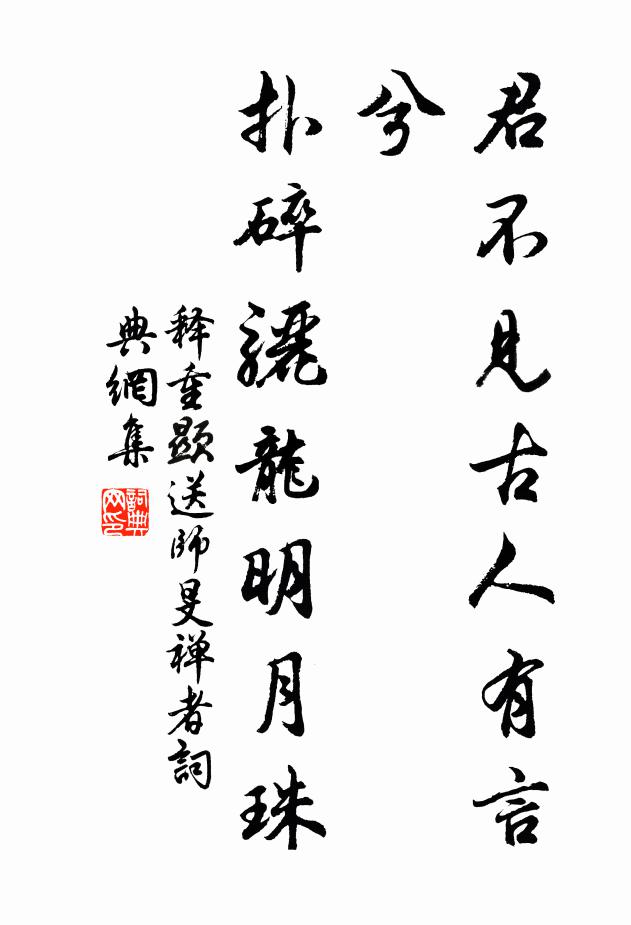 君不見古人有言
兮
扑碎驪龍明月珠
释重顯送師旻禅者詞
典網集
詞典网印